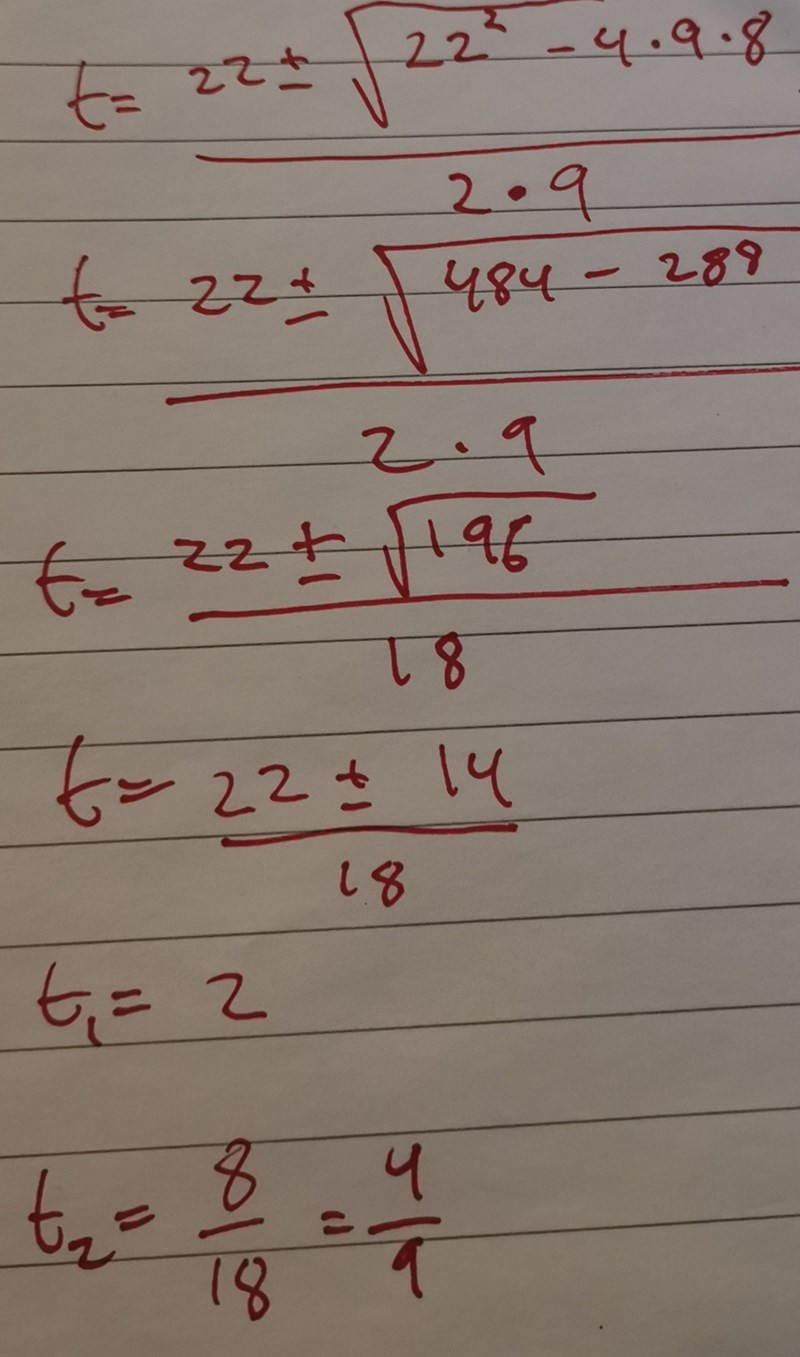 t = (22 ± √(22² - 4·9·8)) / (2·9)
t = (22 ± √(484 - 288)) / (2·9)
t = (22 ± √196) / 18
t = (22 ± 14) / 18
t₁ = 2
t₂ = 8/18 = 4/9